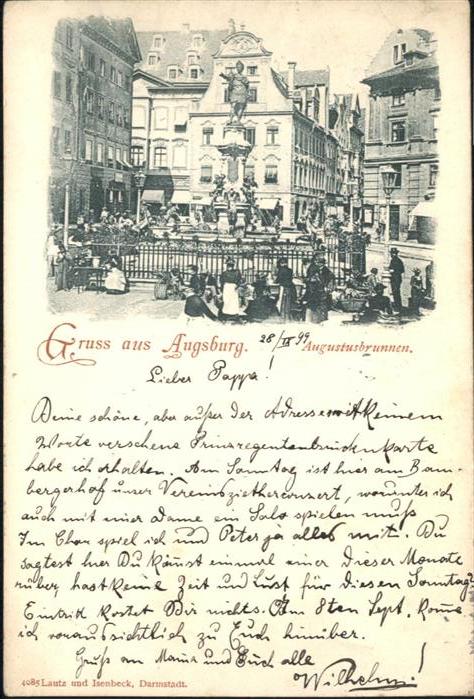 Gruss aus Augsburg. 28/IX 99 Augustusbrunnen.
Lieber Pappa!
Deine schöne, aber außer der Adresse mit keinem
Worte versehene Prinzregentenbrückenkarte
habe ich erhalten. Am Sonntag ist hier am Bam-
bergerhof unser Vereinszitherconzert, worunter ich
auch mit einer Dame ein Solo spielen muß
Im Chor spiel ich und Peter ja alles mit. Du
sagtest hier Du kämst einmal einer dieser Monate
rüber, hast keine Zeit und Lust für diesen Sonntag?
Eintritt kostet Dir nichts. Am 8ten Sept. komme
ich voraussichtlich zu Euch hinüber.
Gruß an Mama und Euch alle
Wilhelm!
4085 Lautz und Isenbeck, Darmstadt.